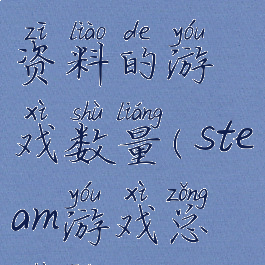 zī liào de yóu
资料的游
xì shù liáng
戏数量(ste
yóu xì zǒng
am游戏总